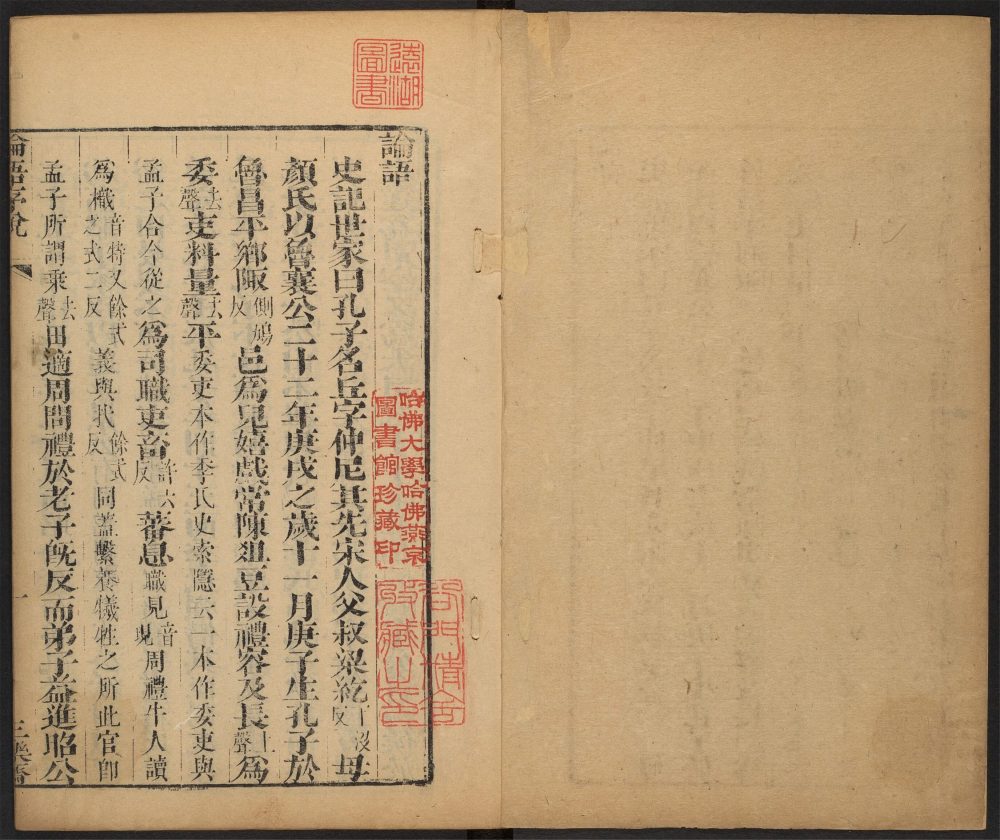 論語
史記世家曰孔子名丘字仲尼其先宋人父叔梁紇下沒反母
顏氏以魯襄公二十二年庚戌之歲十一月庚子生孔子於
魯昌平鄉陬側鳩反邑為兒嬉戲常陳俎豆設禮容及長上聲為
委去聲吏料量去聲平委吏本作季氏史索隱云一本作委吏與
孟子合今從之為司職吏畜許六反蕃息職見音現周禮牛人讀
為樴音特又餘式反之式二反義與杙餘式反同蓋繫養犧牲之所此官即
孟子所謂乘去聲田適周問禮於老子既反而弟子益進昭公
論語序說
一
遠湖圖書
哈佛大學哈佛燕京圖書館珍藏印